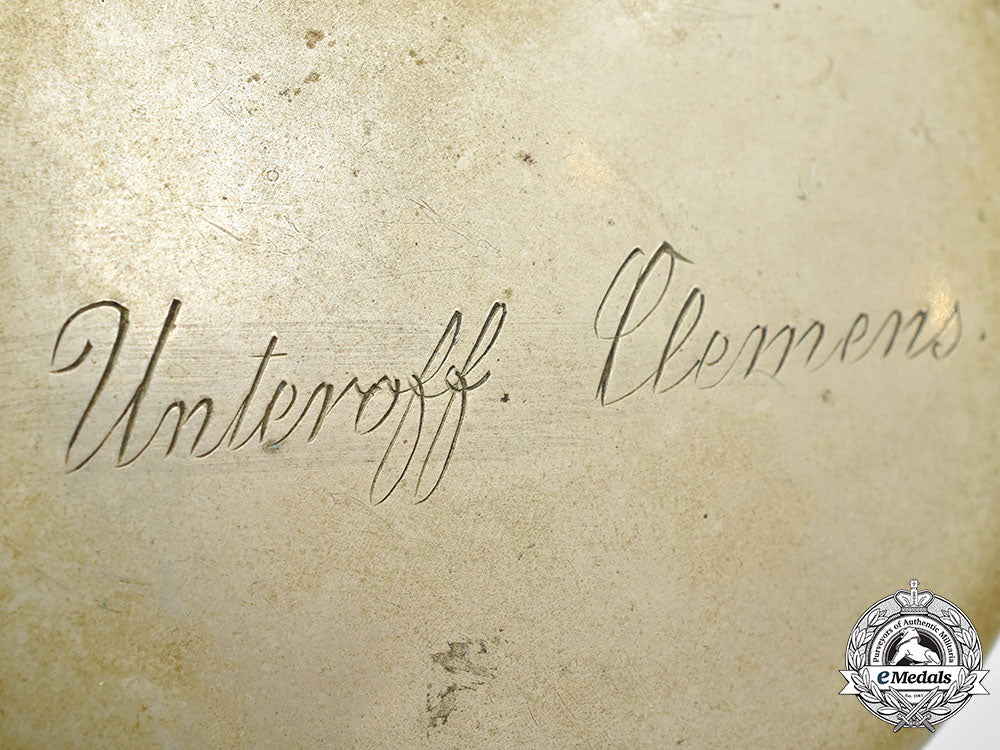 Unteroff. Clemens.
Purveyors of Authentic Militaria
eMedals
Est. 1985